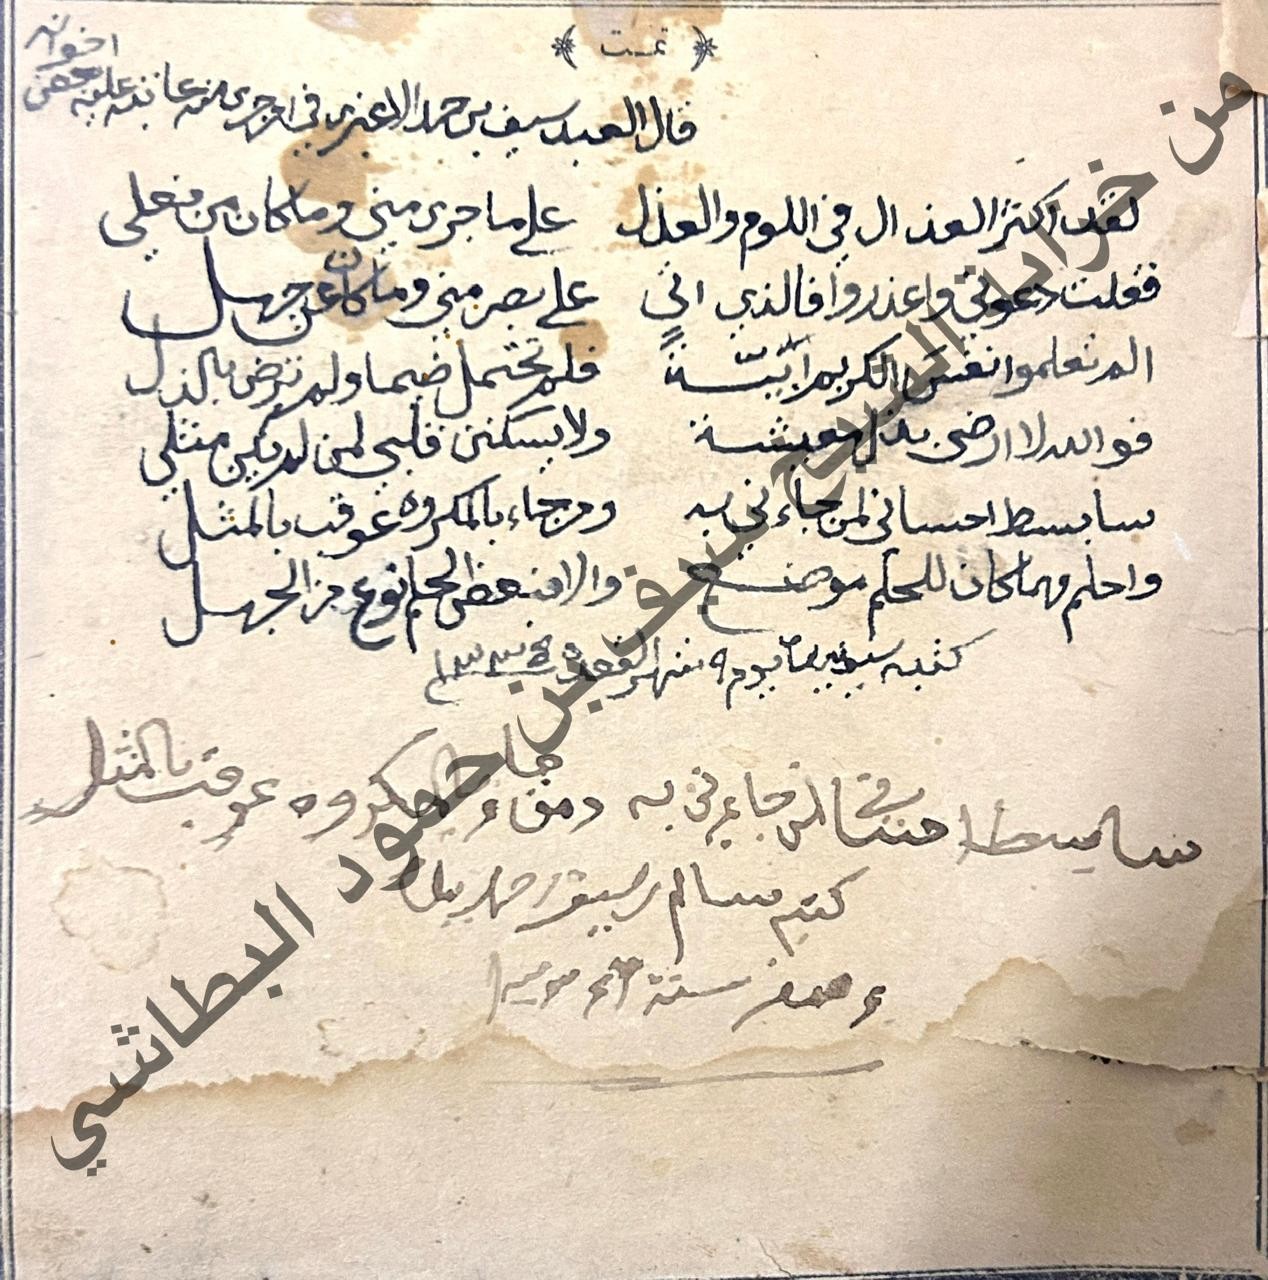 تمت
قال العبد سيف بن حمد الاغبري في امر جرى منه عاتبه عليه بعض
اخوانه
لقد اكثر العذال في اللوم والعذل على ما جرى مني وما كان من فعلي
فقلت دعوني واعذروا فالذي اتى على بصر مني وما كان عن جهل
الم تعلموا نفس الكريم ابيّةً فلم تحتمل ضيما ولم ترض بالذل
فو الله لا ارضى بذل معيشة ولا يسكنن قلبي لمن لم يكن مثلي
سابسط احساني لمن جاءني به ومن جاء بالمكروه عوقب بالمثل
واحلم مهما كان للحلم موضع والا فبعض الحلم نوع من الجهل
كتبه سيف بيده يوم ٩ شهر القعدة
سابسط احساني لمن جاءني به ومن جاء بالمكروه عوقب بالمثل
كتبه سالم بن سيف بن حمد بيده
صفر سنة
من خزانة الشيخ سيف بن حمود البطاشي